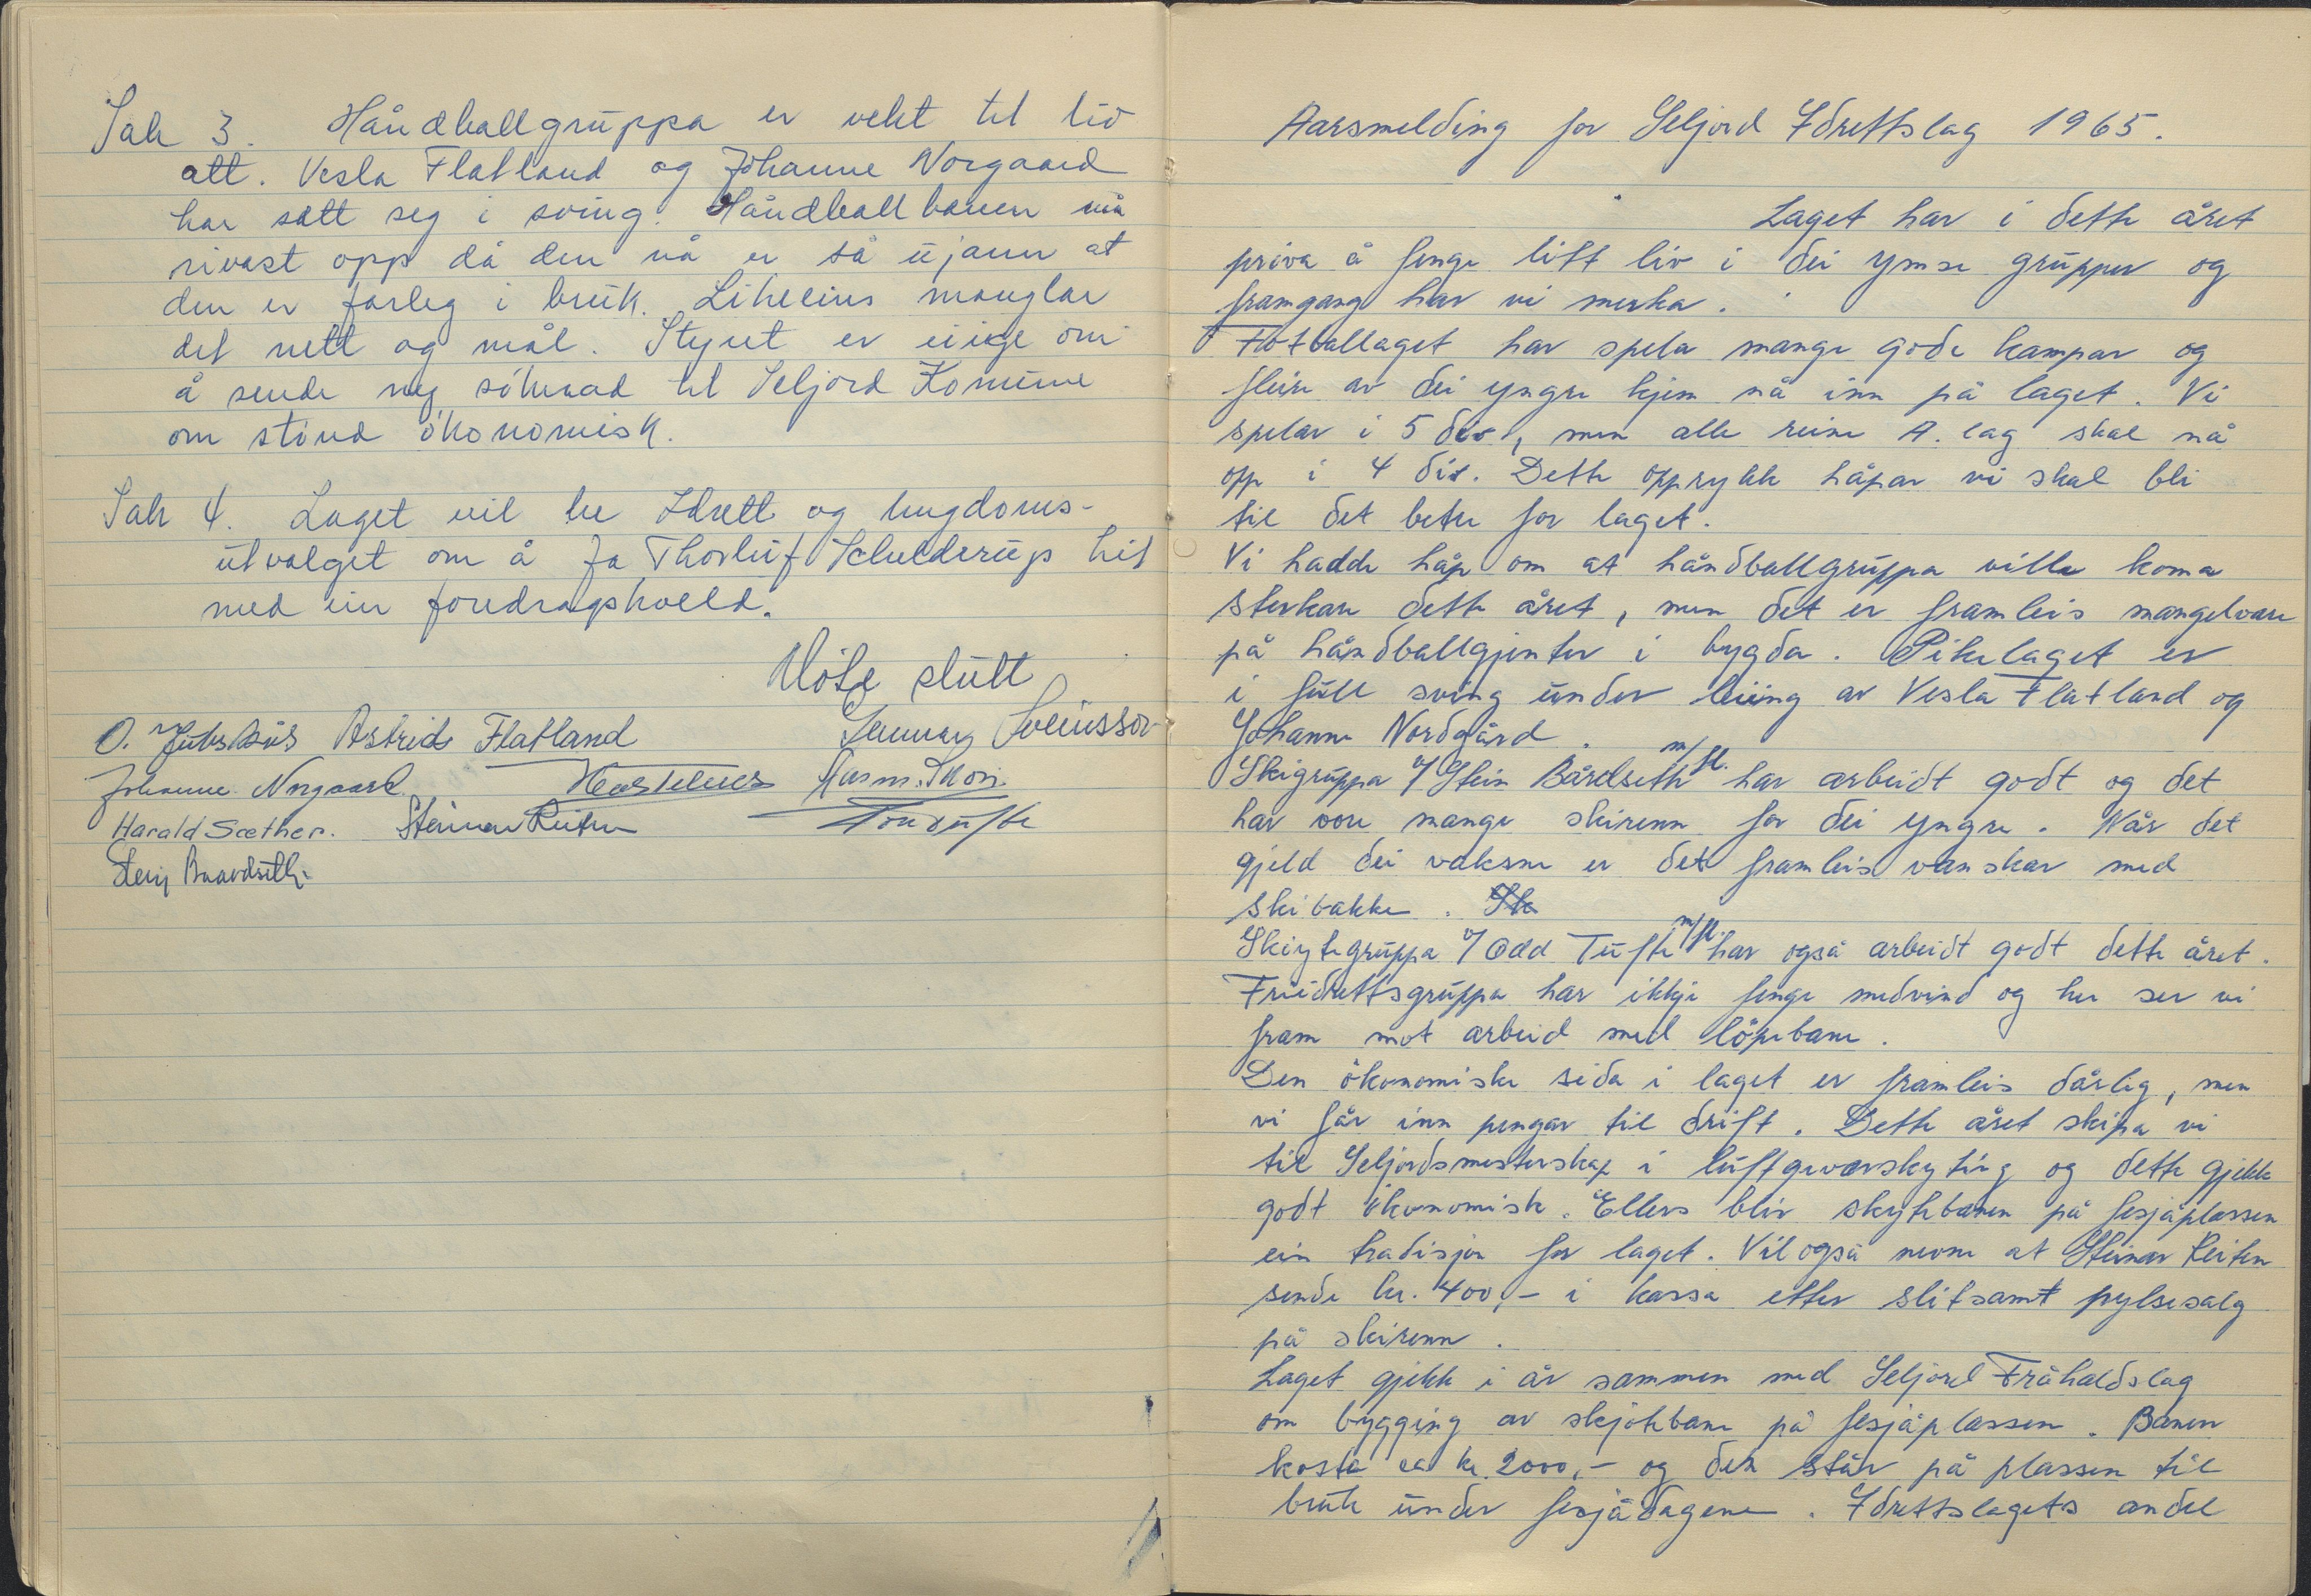 Sak 3. Håndballgruppa er vekt til liv
att. Vesla Flatland og Johanne Norgaard
har sett seg i sving. Håndballbanen må
rivast opp då den nå er så ujamn at
den er farleg i bruk. Likeeins manglar
det nett og mål. Styret er einige om
å sende ny søknad til Seljord Komune
om stønad økonomisk.
Sak 4. Laget vil be Idrett og Ungdoms-
utvalget om å fa Thorleif Schelderup hit
med ein foredragskveld.
Møte slutt
O. Astrid Flatland Sveinsson
Johanne Norgaard.
Harald Sæther. Steinar Reiten
Stein Baardseth.
Aarsmelding for Seljord Idrettslag 1965.
Laget har i dette året
prøva å fenge litt liv i dei ymse grupper og
framgang har vi merka.
Fotballaget har spela mange gode kampar og
fleire av dei yngre kjem nå inn på laget. Vi
spelar i 5 div, men alle reine A. lag skal nå
opp i 4 div. Dette opprykk håpar vi skal bli
til det betre for laget.
Vi hadde håp om at håndballgruppa ville koma
sterkare dette året, men det er framleis mangelvare
på håndballgjenter i bygda. Pikelaget er
i full sving under leiing av Vesla Flatland og
Johanne Nordgård.
Skigruppa v/ Stein Bårdseth m/fl. har arbeidt godt og det
har vore mange skirenn for dei yngre. Når det
gjeld dei vaksne er det framleis vanskar med
skibakke. Sk
Skøytegruppa v/ Odd Tufte m/fl. har også arbeidt godt dette året.
Friidrettsgruppa har ikkje fenge medvind og her ser vi
fram mot arbeid med løpebane.
Den økonomiske sida i laget er framleis dårlig, men
vi får inn pengar til drift. Dette året skipa vi
til Seljordsmesterskap i luftgeværskyting og dette gjekk
godt økonomisk. Ellers blir skytebanen på fesjåplassen
ein tradisjon for laget. Vil også nevne at Steinar Reiten
sende kr. 400,- i kassa etter slitsamt pylsesalg
på skirenn.
Laget gjekk i år sammen med Seljord Fråhaldslag
om bygging av skjøtebane på fesjåplassen. Banen
kosta ca kr. 2000,- og den står på plassen til
bruk under fesjådagene. Idrettslagets andel